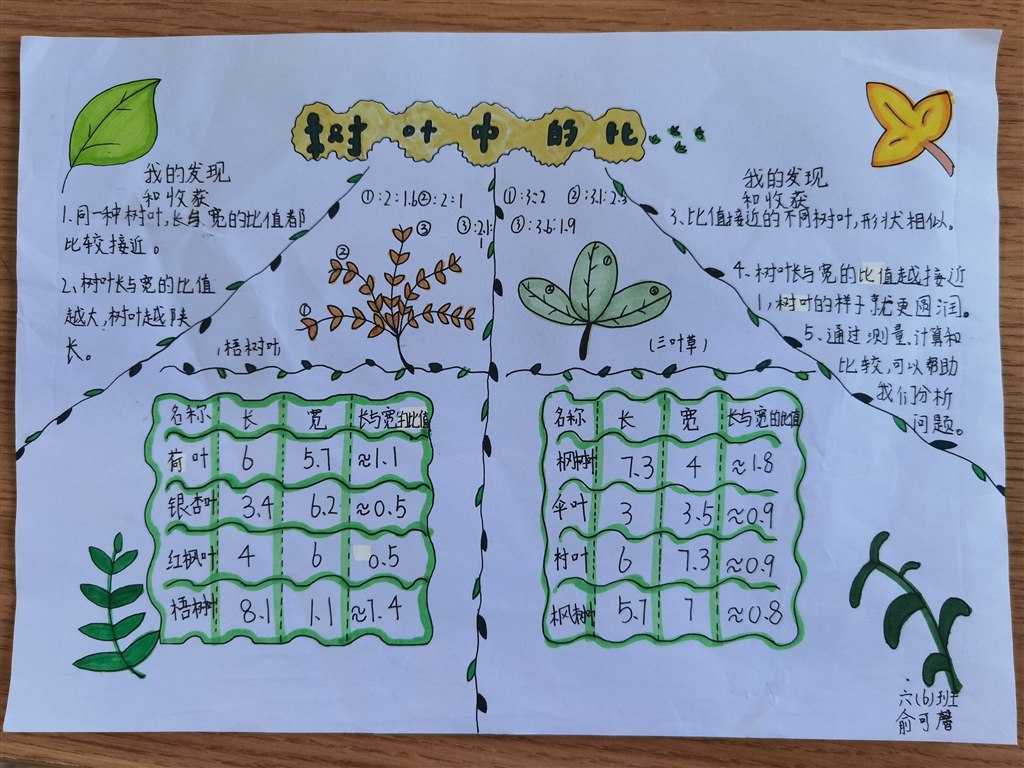 树叶中的比
我的发现
和收获
1.同一种树叶,长与宽的比值都
比较接近。
2、树叶长与宽的比值
越大,树叶越陕
长。
①:2:1.6②:2:1
③:2.1:
1
②
③
①
梧树叶
①:3:2 ②:3.1:2.3
③:3.6:1.9
①
②
③
(三叶草)
我的发现
和收获
3、比值接近的不同树叶,形状相似。
4、树叶长与宽的比值越接近
1,树叶的样子就更圆润。
5、通过测量,计算和
比较,可以帮助
我们分析
问题。
名称 长 宽 长与宽的比值
荷叶 6 5.7 ≈1.1
银杏叶 3.4 6.2 ≈0.5
红枫叶 4 6 0.5
梧树叶 8.1 1.1 ≈7.4
名称 长 宽 长与宽的比值
枫树叶 7.3 4 ≈1.8
伞叶 3 3.5 ≈0.9
村叶 6 7.3 ≈0.9
枫树 5.7 7 ≈0.8
六(6)班
俞可馨